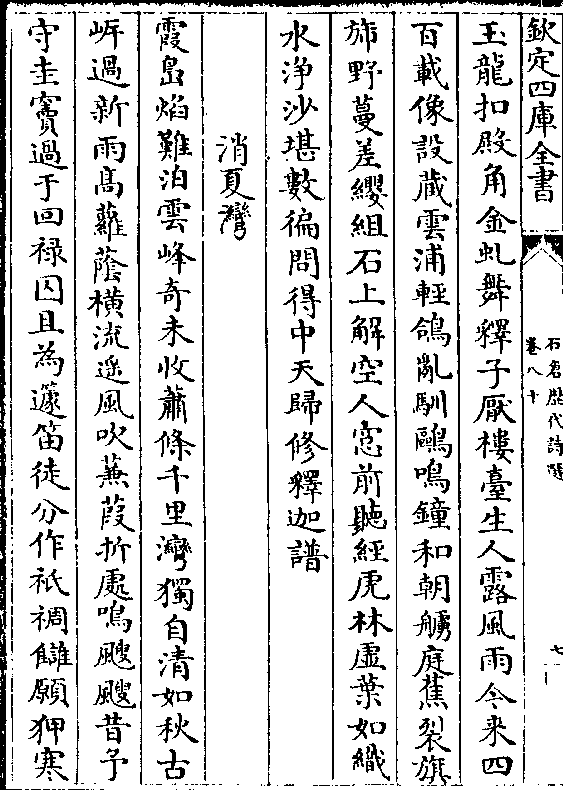 欽定四庫全書
石倉歷代詩選
卷八十
七
玉龍扣殿角金虬舞釋子厭樓臺生人露風雨今来四
百載像設藏雲浦輕鴿亂馴鷗鳴鐘和朝艣庭蕉裂旗
斾野蔓差纓組石上解空人窓前聽經虎林虚葉如織
水淨沙堪數徧問得中天歸修釋迦譜
消夏灣
霞島焰難泊雲峰奇未收蕭條千里灣獨自清如秋古
岸過新雨髙蘿蔭橫流遥風吹蒹葭折處鳴颼颼昔予
守圭竇過于回禄囚且為籧笛徒分作袛裯讎願狎寒